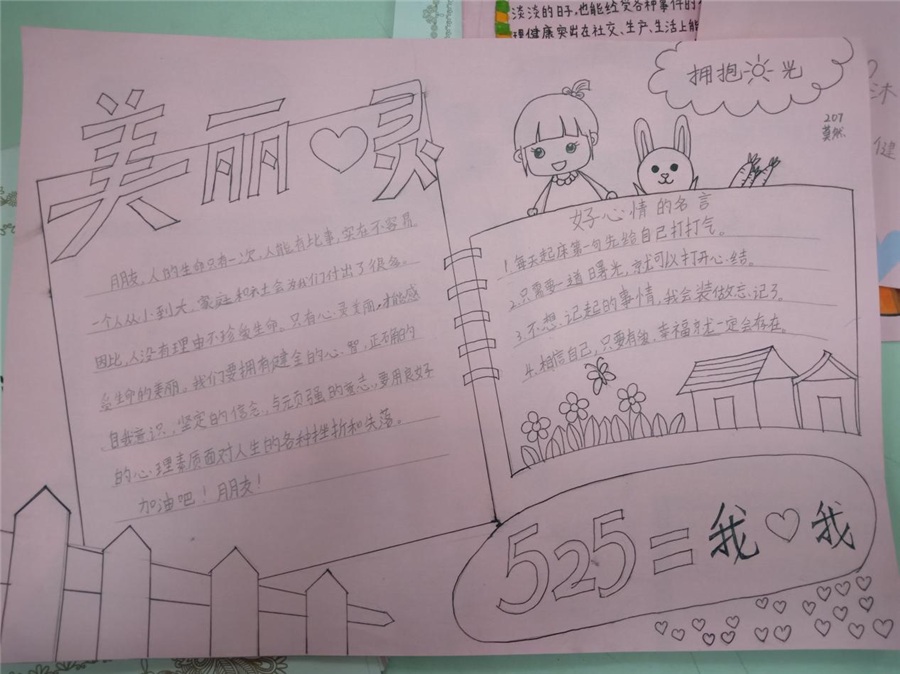 淡淡的日子,也能经受各种事件的
理健康突出在社交、生产、生活上能
美丽♡灵
朋友,人的生命只有一次,人能有此事,实在不容易
一个人从小到大,家庭和社会为我们付出了很多。
因此,人没有理由不珍爱生命。只有心灵美丽,才能感
受生命的美丽。我们要拥有健全的心智,正确的
自我意识,坚定的信念,与顽强的意志,要用良好
的心理素质面对人生的各种挫折和失落。
加油吧!朋友!
拥抱光
207
好心情的名言
1.每天起床第一句先给自己打打气。
2.只需要一道曙光,就可以打开心结。
3.不想记起的事情,我会装做忘记了
4.相信自己,只要有我,幸福就一定会存在。
525=我♡我
沐
健